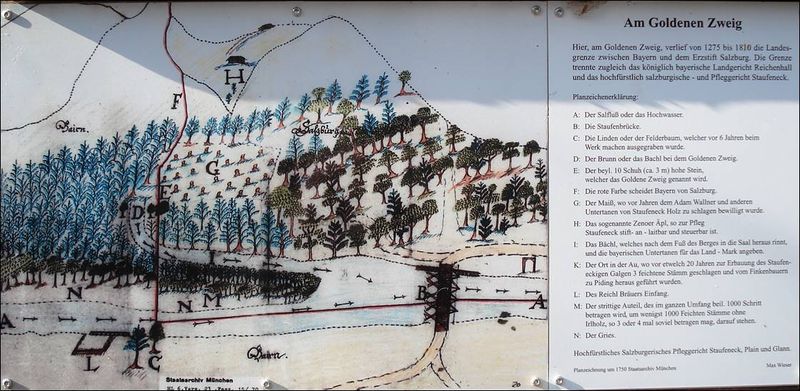 Am Goldenen Zweig
Hier, am Goldenen Zweig, verlief von 1275 bis 1810 die Landes-
grenze zwischen Bayern und dem Erzstift Salzburg. Die Grenze
trennte zugleich das königlich bayerische Landgericht Reichenhall
und das hochfürstlich salzburgische - und Pfleggericht Staufeneck.
Planzeichenerklärung:
A: Der Salfluß oder das Hochwasser.
B: Die Staufenbrücke.
C: Die Linden oder der Felderbaum, welcher vor 6 Jahren beim
Werk machen ausgegraben wurde.
D: Der Brunn oder das Bachl bei dem Goldenen Zweig.
E: Der beyl. 10 Schuh (ca. 3 m) hohe Stein,
welcher das Goldene Zweig genannt wird.
F: Die rote Farbe scheidet Bayern von Salzburg.
G: Der Maiß, wo vor Jahren dem Adam Wallner und anderen
Untertanen von Staufeneck Holz zu schlagen bewilligt wurde.
H: Das sogenannte Zenoer Äpl, so zur Pfleg
Staufeneck stift- an - laitbar und steuerbar ist.
I: Das Bächl, welches nach dem Fuß des Berges in die Saal heraus rinnt,
und die bayerischen Untertanen für das Land - Mark angeben.
K: Der Ort in der Au, wo vor etwelch 20 Jahren zur Erbauung des Staufen-
eckigen Galgen 3 feichtene Stämm geschlagen und vom Finkenbauern
zu Piding heraus geführt wurden.
L: Des Reichl Bräuers Einfang.
M: Der strittige Auteil, des im ganzen Umfang beil. 1000 Schritt
betragen wird, um wenigst 1000 Feichten Stämme ohne
Irlholz, so 3 oder 4 mal soviel betragen mag, darauf stehen.
N: Der Gries.
Hochfürstliches Salzburgerisches Pfleggericht Staufeneck, Plain und Glann.
Planzeichnung um 1750 Staatsarchiv München
Max Wieser
H
F
Bairn.
Salzburg
G
E
D
I
N
N M
B
A
A
L
C
Bairn.
Staatsarchiv München